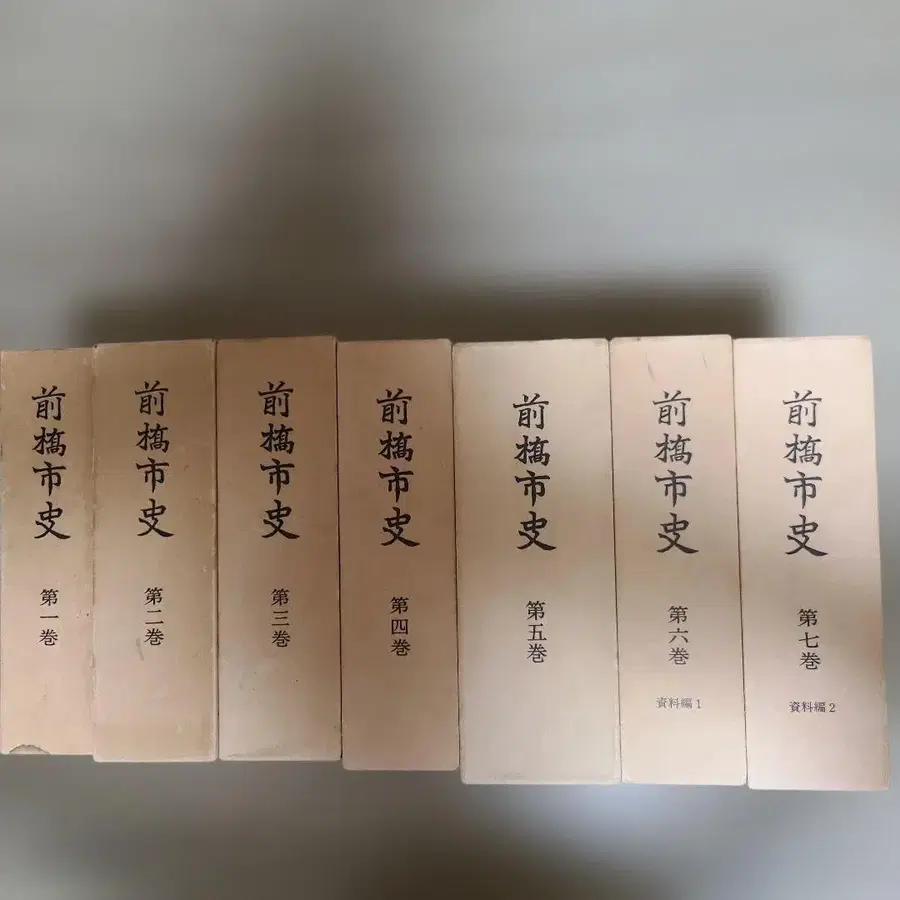 前橋市史
第一巻
前橋市史
第二巻
前橋市史
第三巻
前橋市史
第四巻
前橋市史
第五巻
前橋市史
第六巻
資料編1
前橋市史
第七巻
資料編2